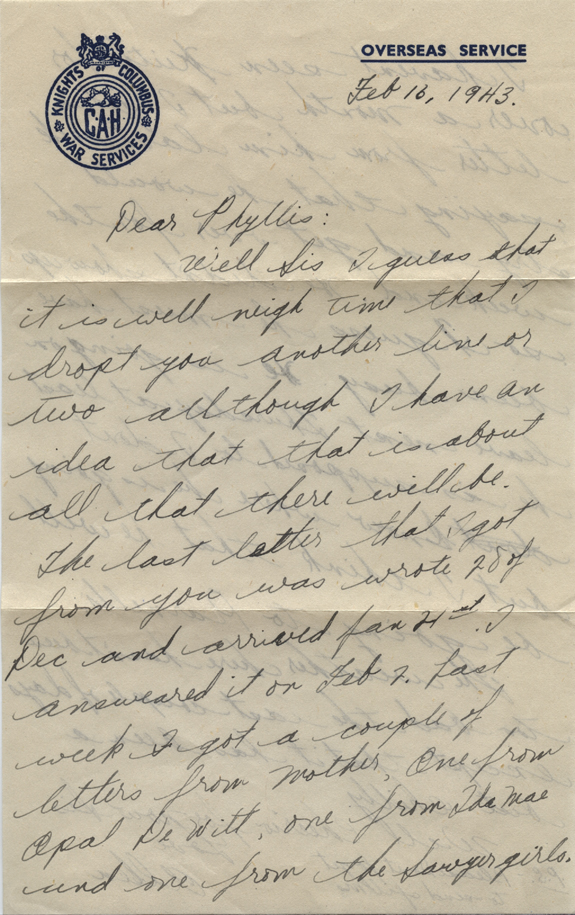 KNIGHTS OF COLUMBUS
CAH
WAR SERVICES
OVERSEAS SERVICE
Feb 16, 1943.
Dear Phyllis:
Well Sis I guess that
it is well neigh time that I
dropt you another line or
two allthough I have an
idea that that is about
all that there will be.
The last letter that I got
from you was wrote 28 of
Dec and arrived Jan 21st. I
answeared it on Feb 2. Last
week I got a couple of
letters from Mother, One from
Opal De Witt, one from Ida Mae
and one from the Sawyer girls.